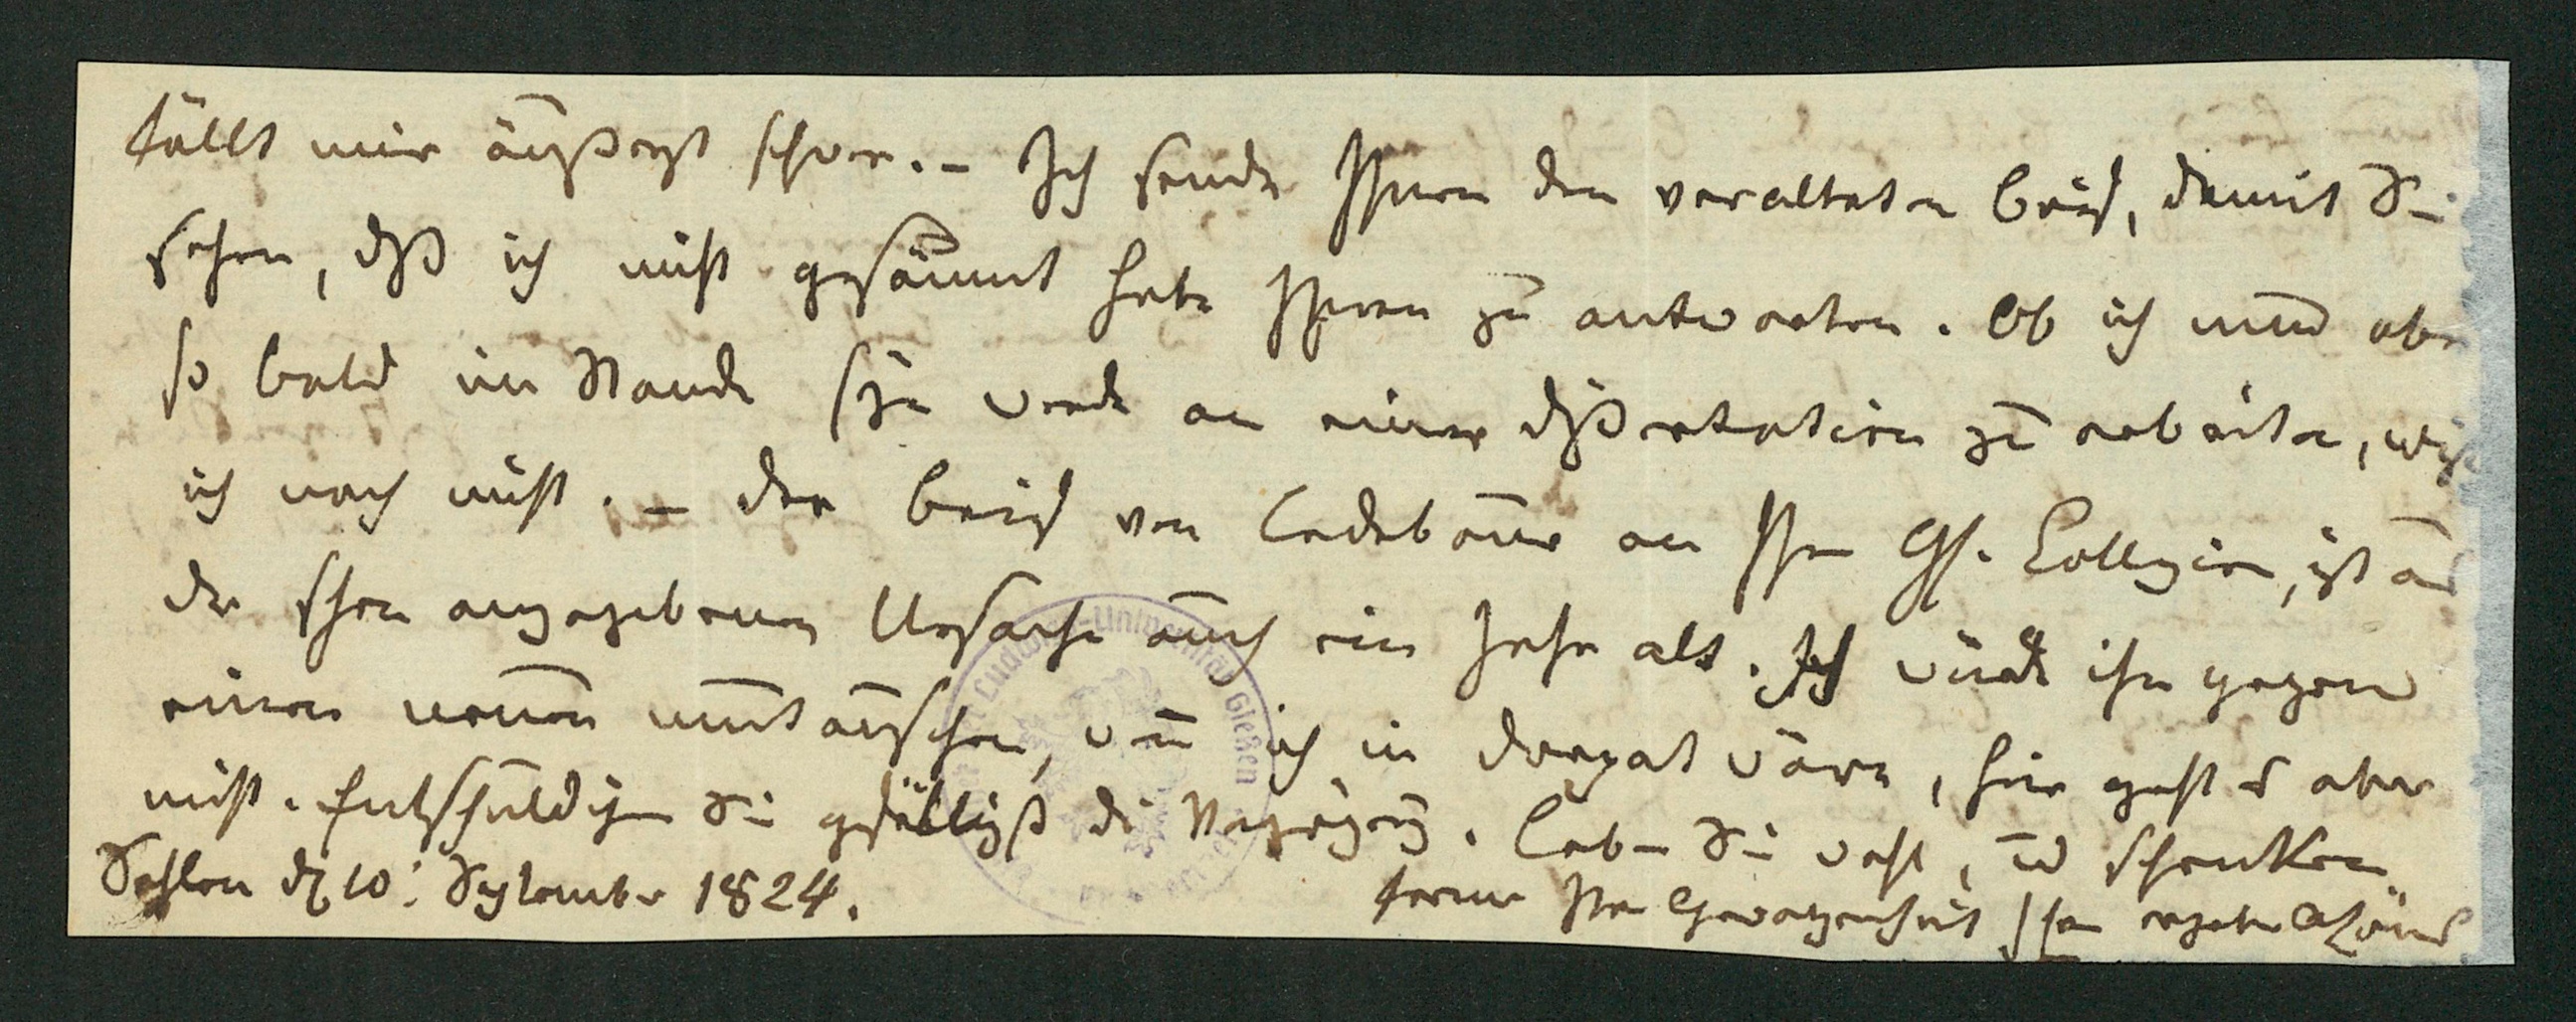 fällt mir äußerst schwer. – Ich sende Ihnen den veralteten Brief, damit Sie
sehen, daß ich nicht gesäumt habe Ihnen zu antworten. Ob ich nun aber
so bald im Stande seyn werde an einer Dissertation zu arbeiten, weiß
ich noch nicht. – Der Brief von Ledebour an Ihre Gesellsch. ist aus
der schon angegebenen Ursache auch ein Jahr alt. Ich würde ihn gegen
einen neuen umtauschen, wenn ich in Dorpat wäre, hier geht es aber
nicht. Entschuldigen Sie gefälligst die Verzögerung. Leben Sie wohl, und schenken
ferner Ihre Gewogenheit Ihrem ergebenen
den 10. September 1824.
Ludwigs-Universität Gießen